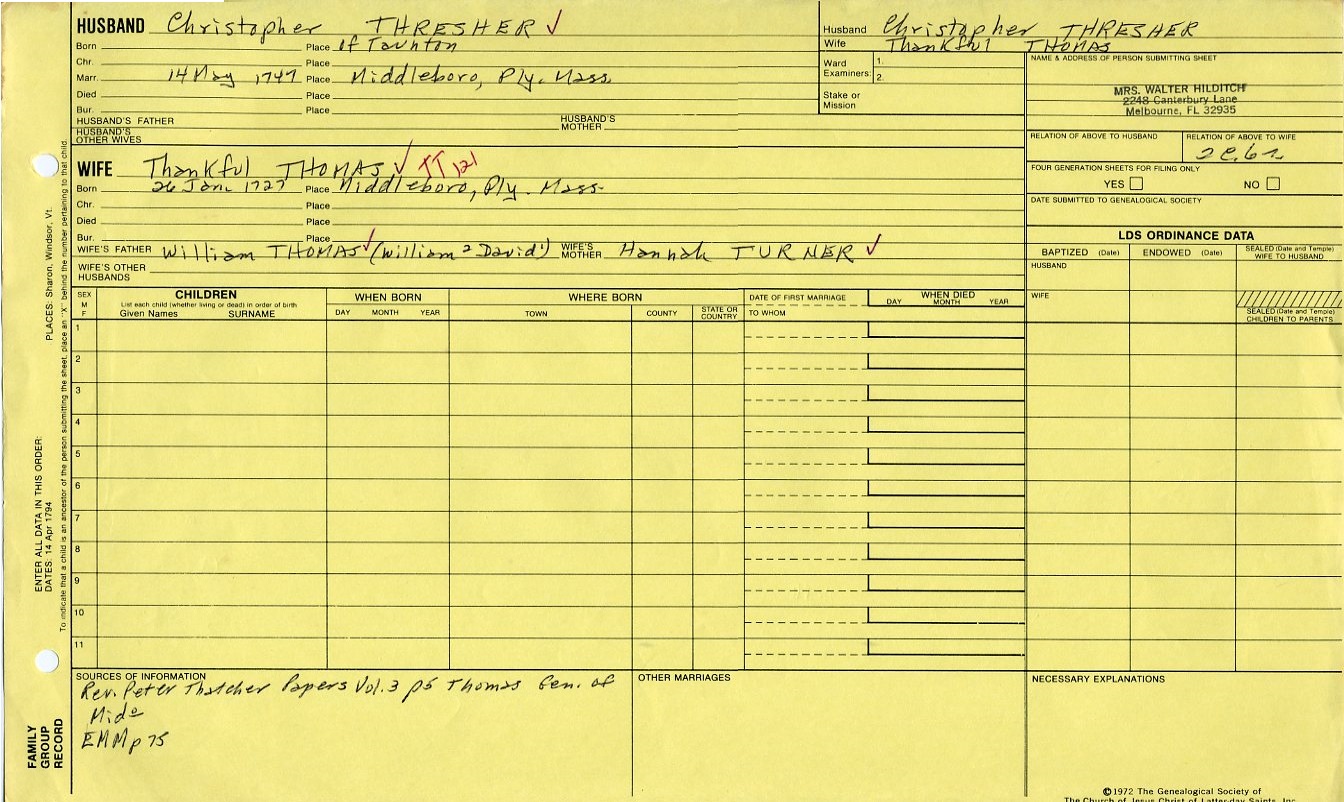 HUSBAND Christopher THRESHER ✓
Born Place of Taunton
Chr. Place
Marr. 14 May 1747 Place Middleboro, Ply. Mass
Died Place
Bur. Place
HUSBAND'S FATHER HUSBAND'S MOTHER
HUSBAND'S OTHER WIVES
WIFE Thankful THOMAS ✓ TT 121
Born 26 Jan. 1727 Place Middleboro, Ply. Mass
Chr. Place
Died Place
Bur. Place
WIFE'S FATHER William THOMAS ✓ (William 2 David 1) WIFE'S MOTHER Hannah TURNER ✓
WIFE'S OTHER HUSBANDS
Husband Christopher THRESHER
Wife Thankful THOMAS
Ward Examiners: 1. 2.
Stake or Mission
NAME & ADDRESS OF PERSON SUBMITTING SHEET
MRS. WALTER HILDITCH
2248 Canterbury Lane
Melbourne, FL 32935
RELATION OF ABOVE TO HUSBAND RELATION OF ABOVE TO WIFE
FOUR GENERATION SHEETS FOR FILING ONLY
YES NO
DATE SUBMITTED TO GENEALOGICAL SOCIETY
LDS ORDINANCE DATA
BAPTIZED (Date) ENDOWED (Date) SEALED (Date and Temple) WIFE TO HUSBAND
HUSBAND
WIFE
SEALED (Date and Temple) CHILDREN TO PARENTS
SEX M F
CHILDREN
List each child (whether living or dead) in order of birth
Given Names SURNAME
WHEN BORN
DAY MONTH YEAR
WHERE BORN
TOWN COUNTY STATE OR COUNTRY
DATE OF FIRST MARRIAGE
TO WHOM
WHEN DIED
DAY MONTH YEAR
1
2
3
4
5
6
7
8
9
10
11
SOURCES OF INFORMATION
Rev. Peter Thatcher Papers Vol. 3 p5 Thomas Gen. of
Mido
EMM p 75
OTHER MARRIAGES
NECESSARY EXPLANATIONS
©1972 The Genealogical Society of
The Church of Jesus Christ of Latter-day Saints, Inc.
PLACES: Sharon, Windsor, Vt.
To indicate that a child is an ancestor of the person submitting the sheet, place an "X" behind the number pertaining to that child.
ENTER ALL DATA IN THIS ORDER:
DATES: 14 Apr 1794
FAMILY
GROUP
RECORD